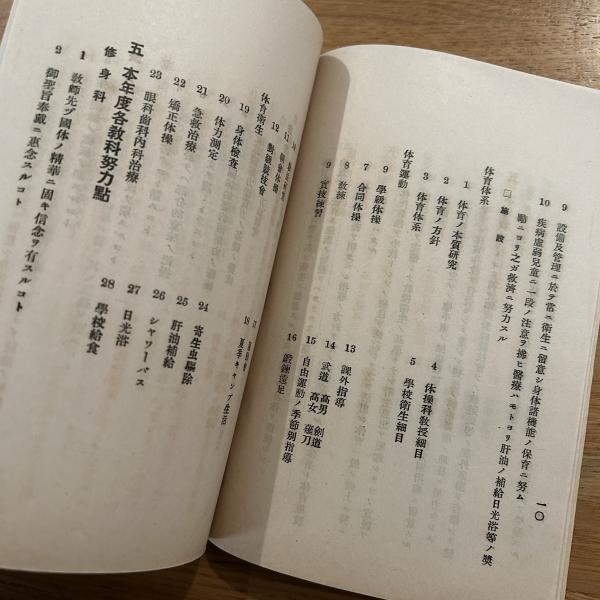 一〇
9 設備及管理ニ於テ常ニ衛生ニ留意シ身体諸機能ノ保育ニ努ム
10 疾病虚弱児童ニ一段ノ注意ヲ拂ヒ醫療ハモトヨリ肝油ノ補給日光浴等ノ奬
勵ニヨリ之ガ救濟ニ努力スル
施設
体育体系
1 体育ノ本質研究
2 体育ノ方針
3 体育体系
4 体操科教授細目
5 學校衛生細目
体育運動
9 學級体操
7 合同体操
8 教練
9 實技練習
13 課外指導
14 武道 高男 劍道
高女 薙刀
15 自由運動ノ季節別指導
16 鍛錬遠足
12 對級競技會
18 夏季キャンプ生活
体育衛生
19 身体檢査
20 体力測定
21 急救治療
22 矯正体操
23 眼科歯科内科治療
24 寄生虫驅除
25 肝油補給
26 シャワーバス
27 日光浴
28 學校給食
五 本年度各教科努力點
修身科
1 教師先ヅ國体ノ精華ニ固キ信念ヲ有スルコト
2 御聖旨奉戴ニ惠念スルコト